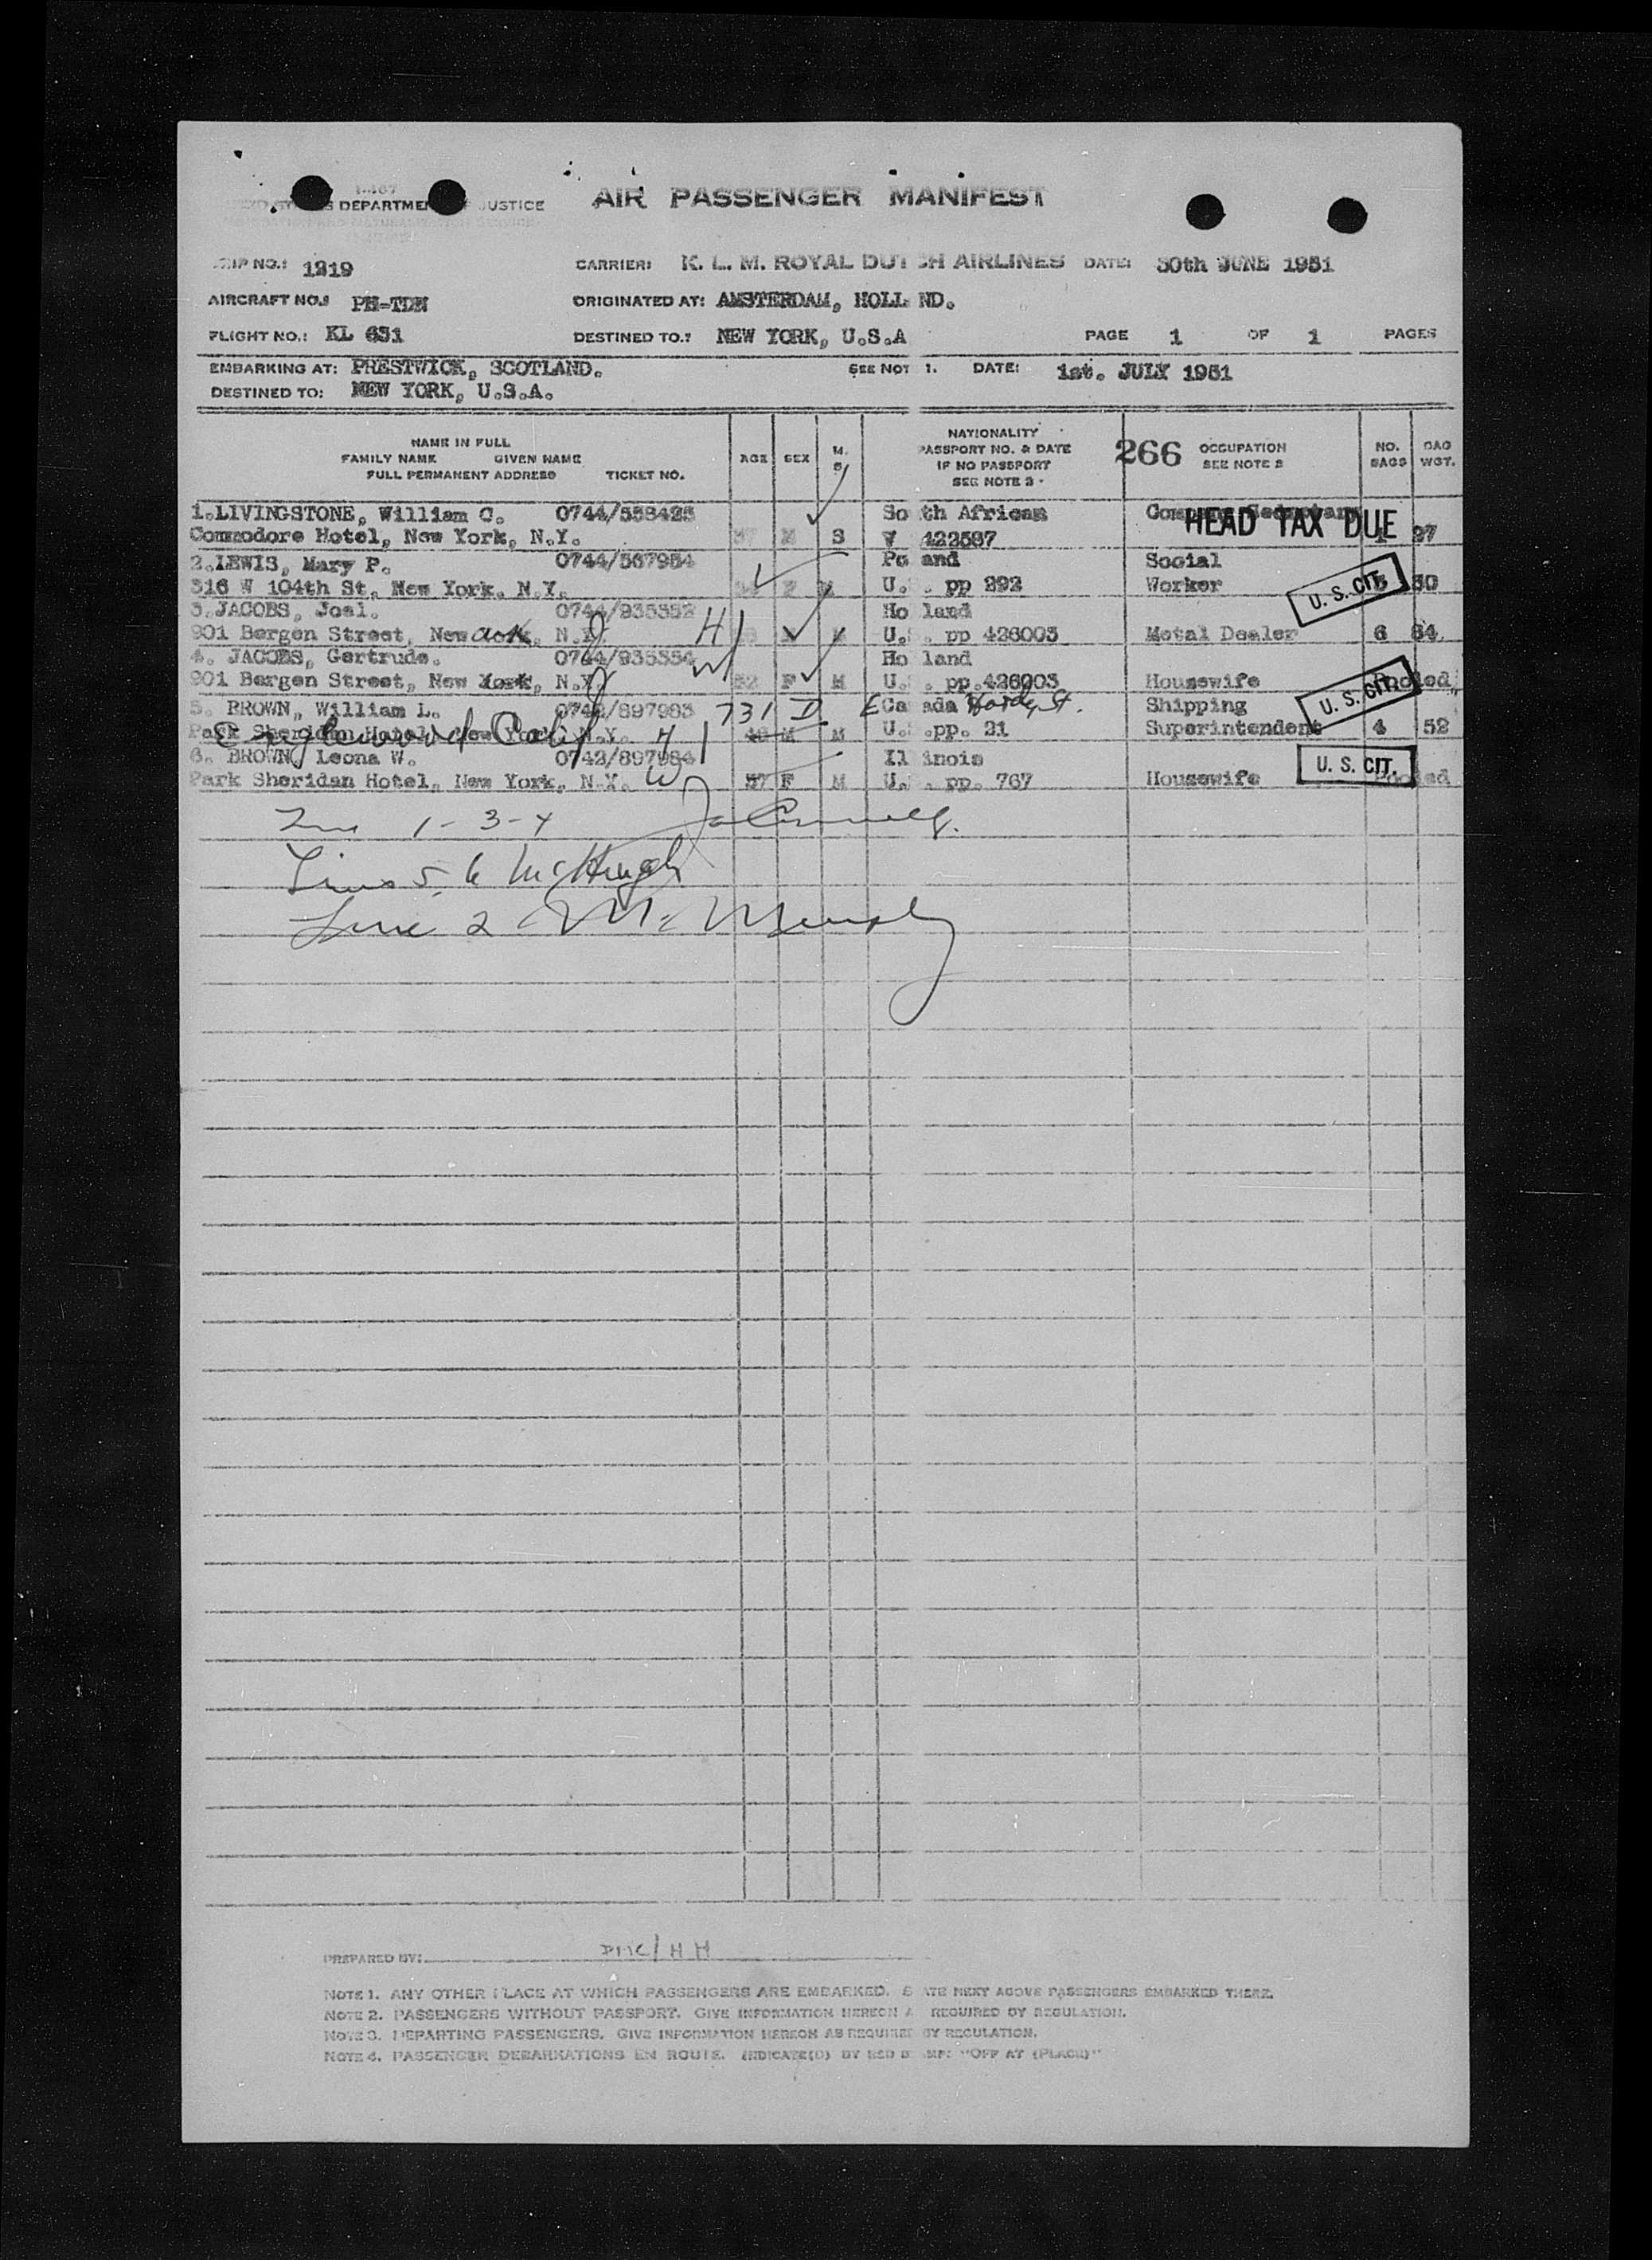 I-467
DEPARTMENT JUSTICE AIR PASSENGER MANIFEST
TRIP NO.: 1219 CARRIER: K. L. M. ROYAL DUTCH AIRLINES DATE: 30th JUNE 1951
AIRCRAFT NO.: PH-TDN ORIGINATED AT: AMSTERDAM, HOLL ND.
FLIGHT NO.: KL 631 DESTINED TO.: NEW YORK, U.S.A PAGE 1 OF 1 PAGES
EMBARKING AT: PRESTWICK, SCOTLAND. SEE NOT 1. DATE: 1st. JULY 1951
DESTINED TO: NEW YORK, U.S.A.
NAME IN FULL
FAMILY NAME GIVEN NAME
FULL PERMANENT ADDRESS TICKET NO.
AGE SEX M. S.
NATIONALITY
PASSPORT NO. & DATE
IF NO PASSPORT
SEE NOTE 2
266 OCCUPATION
SEE NOTE 3
NO. BAGS BAG WGT.
1.LIVINGSTONE, William C. 0744/558425 So th African Company Secretary
Commodore Hotel, New York, N.Y. M S V 422587 HEAD TAX DUE 27
2.LEWIS, Mary P. 0744/567954 Po and Social
316 W 104th St, New York, N.Y. F M U. . pp 292 Worker U. S. CIT. 30
3.JACOBS, Joel. 0744/935352 H Ho land
901 Bergen Street, Newark, N.J. M U. . pp 426003 Metal Dealer 6 64
4. JACOBS, Gertrude. 0744/935354 W Ho land
901 Bergen Street, New York, N.J. 52 F M U. . pp.426003 Housewife U. S. CIT. Pooled
5. BROWN, William L. 0742/897983 731 E Ca ada Hardy St. Shipping
Park Sheridan Hotel, New York, N.Y. Englewood Calif H M M U. .pp. 21 Superintendent 4 52
6. BROWN, Leona W. 0742/897984 Il inois
Park Sheridan Hotel, New York, N.Y. W 37 F M U. . pp. 767 Housewife U. S. CIT. Pooled
1-3-4
Lines 5, 6 McHugh
Line 2 Murphy
PREPARED BY: DMC/HH
NOTE 1. ANY OTHER PLACE AT WHICH PASSENGERS ARE EMBARKED. S ATE NEXT ABOVE PASSENGERS EMBARKED THERE.
NOTE 2. PASSENGERS WITHOUT PASSPORT. GIVE INFORMATION HEREON A REQUIRED BY REGULATION.
NOTE 3. DEPARTING PASSENGERS. GIVE INFORMATION HEREON AS REQUIRED BY REGULATION.
NOTE 4. PASSENGER DEBARKATIONS EN ROUTE. INDICATE(D) BY RED S AMP: "OFF AT (PLACE)"